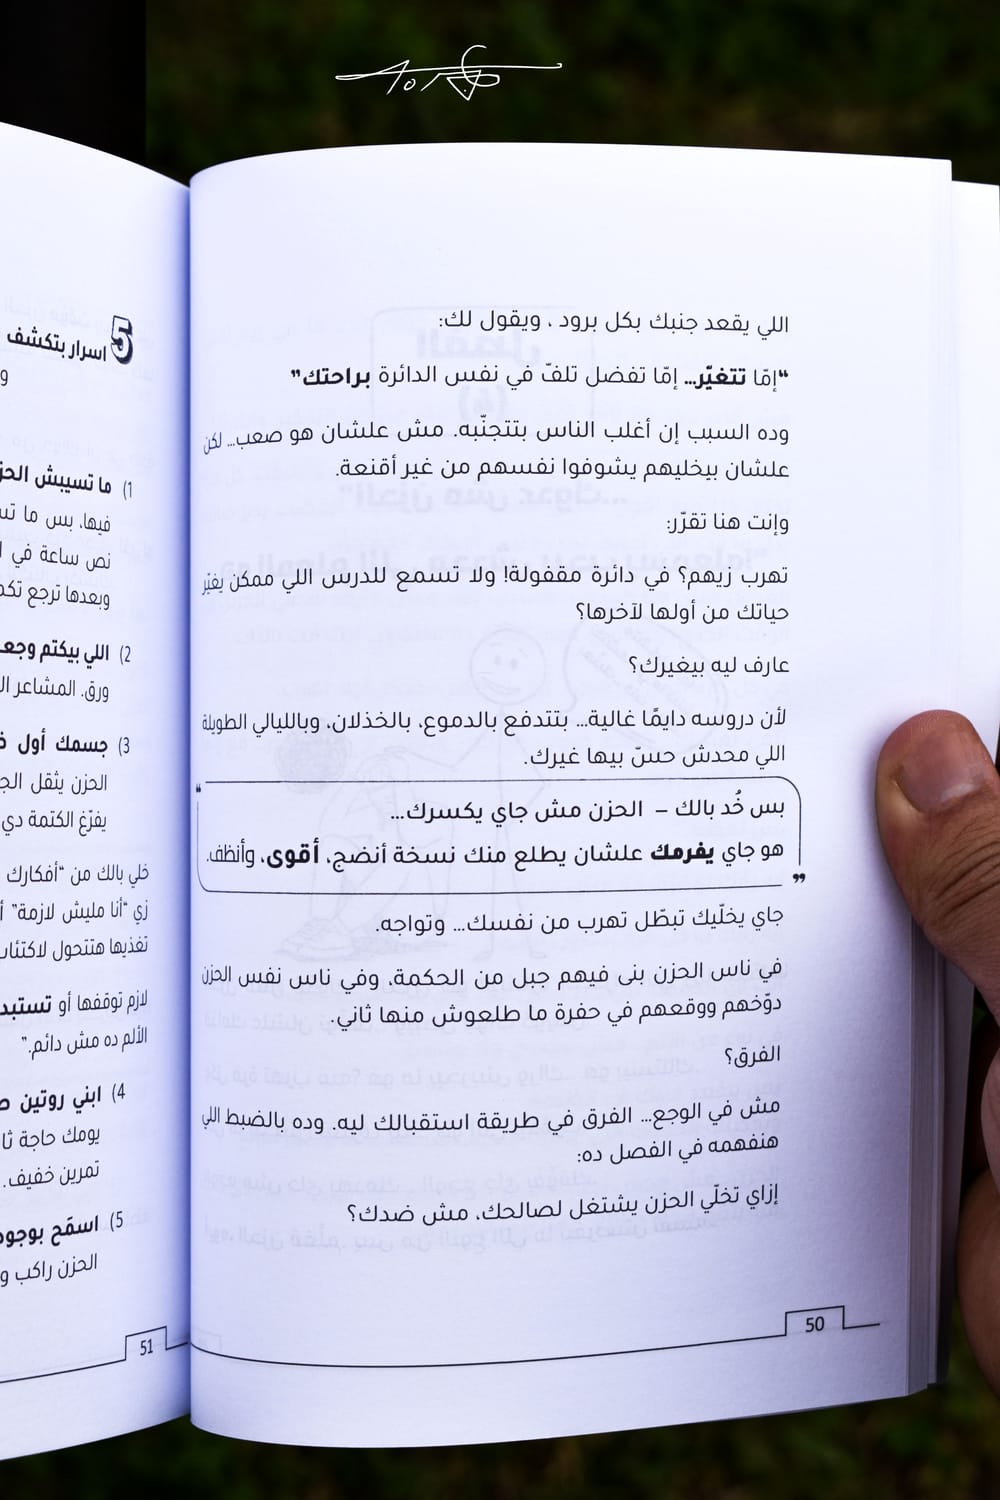 اللي يقعد جنبك بكل برود ، ويقول لك:
“إمّا تتغيّر... إمّا تفضل تلفّ في نفس الدائرة براحتك”
وده السبب إن أغلب الناس بتتجنّبه. مش علشان هو صعب... لكن
علشان بيخليهم يشوفوا نفسهم من غير أقنعة.
وإنت هنا تقرّر:
تهرب زيهم؟ في دائرة مقفولة! ولا تسمع للدرس اللي ممكن يغيّر
حياتك من أولها لآخرها؟
عارف ليه بيغيرك؟
لأن دروسه دايمًا غالية... بتتدفع بالدموع، بالخذلان، وبالليالي الطويلة
اللي محدش حسّ بيها غيرك.
بس خُد بالك – الحزن مش جاي يكسرك...
هو جاي يفرمك علشان يطلع منك نسخة أنضج، أقوى، وأنظف.
جاي يخلّيك تبطّل تهرب من نفسك... وتواجه.
في ناس الحزن بنى فيهم جبل من الحكمة، وفي ناس نفس الحزن
دوّخهم ووقعهم في حفرة ما طلعوش منها ثاني.
الفرق؟
مش في الوجع... الفرق في طريقة استقبالك ليه. وده بالضبط اللي
هنفهمه في الفصل ده:
إزاي تخلّي الحزن يشتغل لصالحك، مش ضدك؟
50
5 اسرار بتكشف
1) ما تسيبش
فيها، بس ما
نص ساعة في
وبعدها ترجع
2) اللي بيكتم
ورق. المشاعر
3) جسمك أول
الحزن يثقل
يفرّغ الكتمة دي
خلي بالك من “أفكارك
زي “أنا مليش لازمة”
تغذيها هتتحول
لازم توقفها أو
الألم ده مش دائم.”
4) ابني روتين
يومك حاجة
تمرين خفيف.
5) اسمَح
الحزن راكب
51